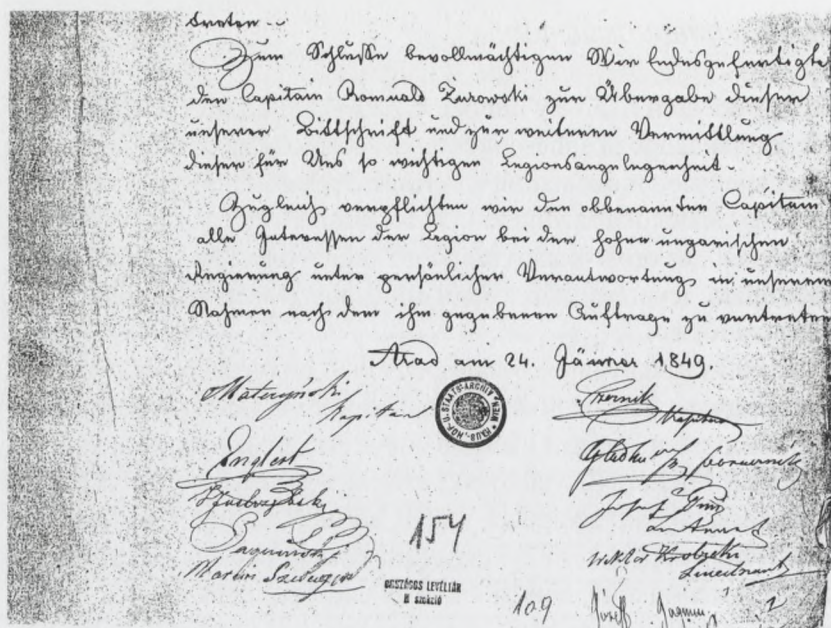 treten.
Zum Schluße bevollmächtigen Wir Endesgefertigte
den Capitain Romuald Żurowski zur Übergabe dieser
unserer Bittschrift und zur weiteren Vermittlung
dieser für Uns so wichtigen Legionsangelegenheit.
Zugleich verpflichten wir den obbenannten Capitain
alle Interessen der Legion bei der hohen ungarischen
Regierung unter persönlicher Verantwortung in unserem
Nahmen nach dem ihm gegebenen Auftrage zu vertreten
Arad am 24. Jänner 1849.
Kapitan
Czernik
Kapitan
HAUS-, HOF- U. STAATS-ARCHIV WIEN
Englert
Józef
Wiktor
Lieutnant
Marcin
154
ORSZÁGOS LEVÉLTÁR
109
Józeff
2